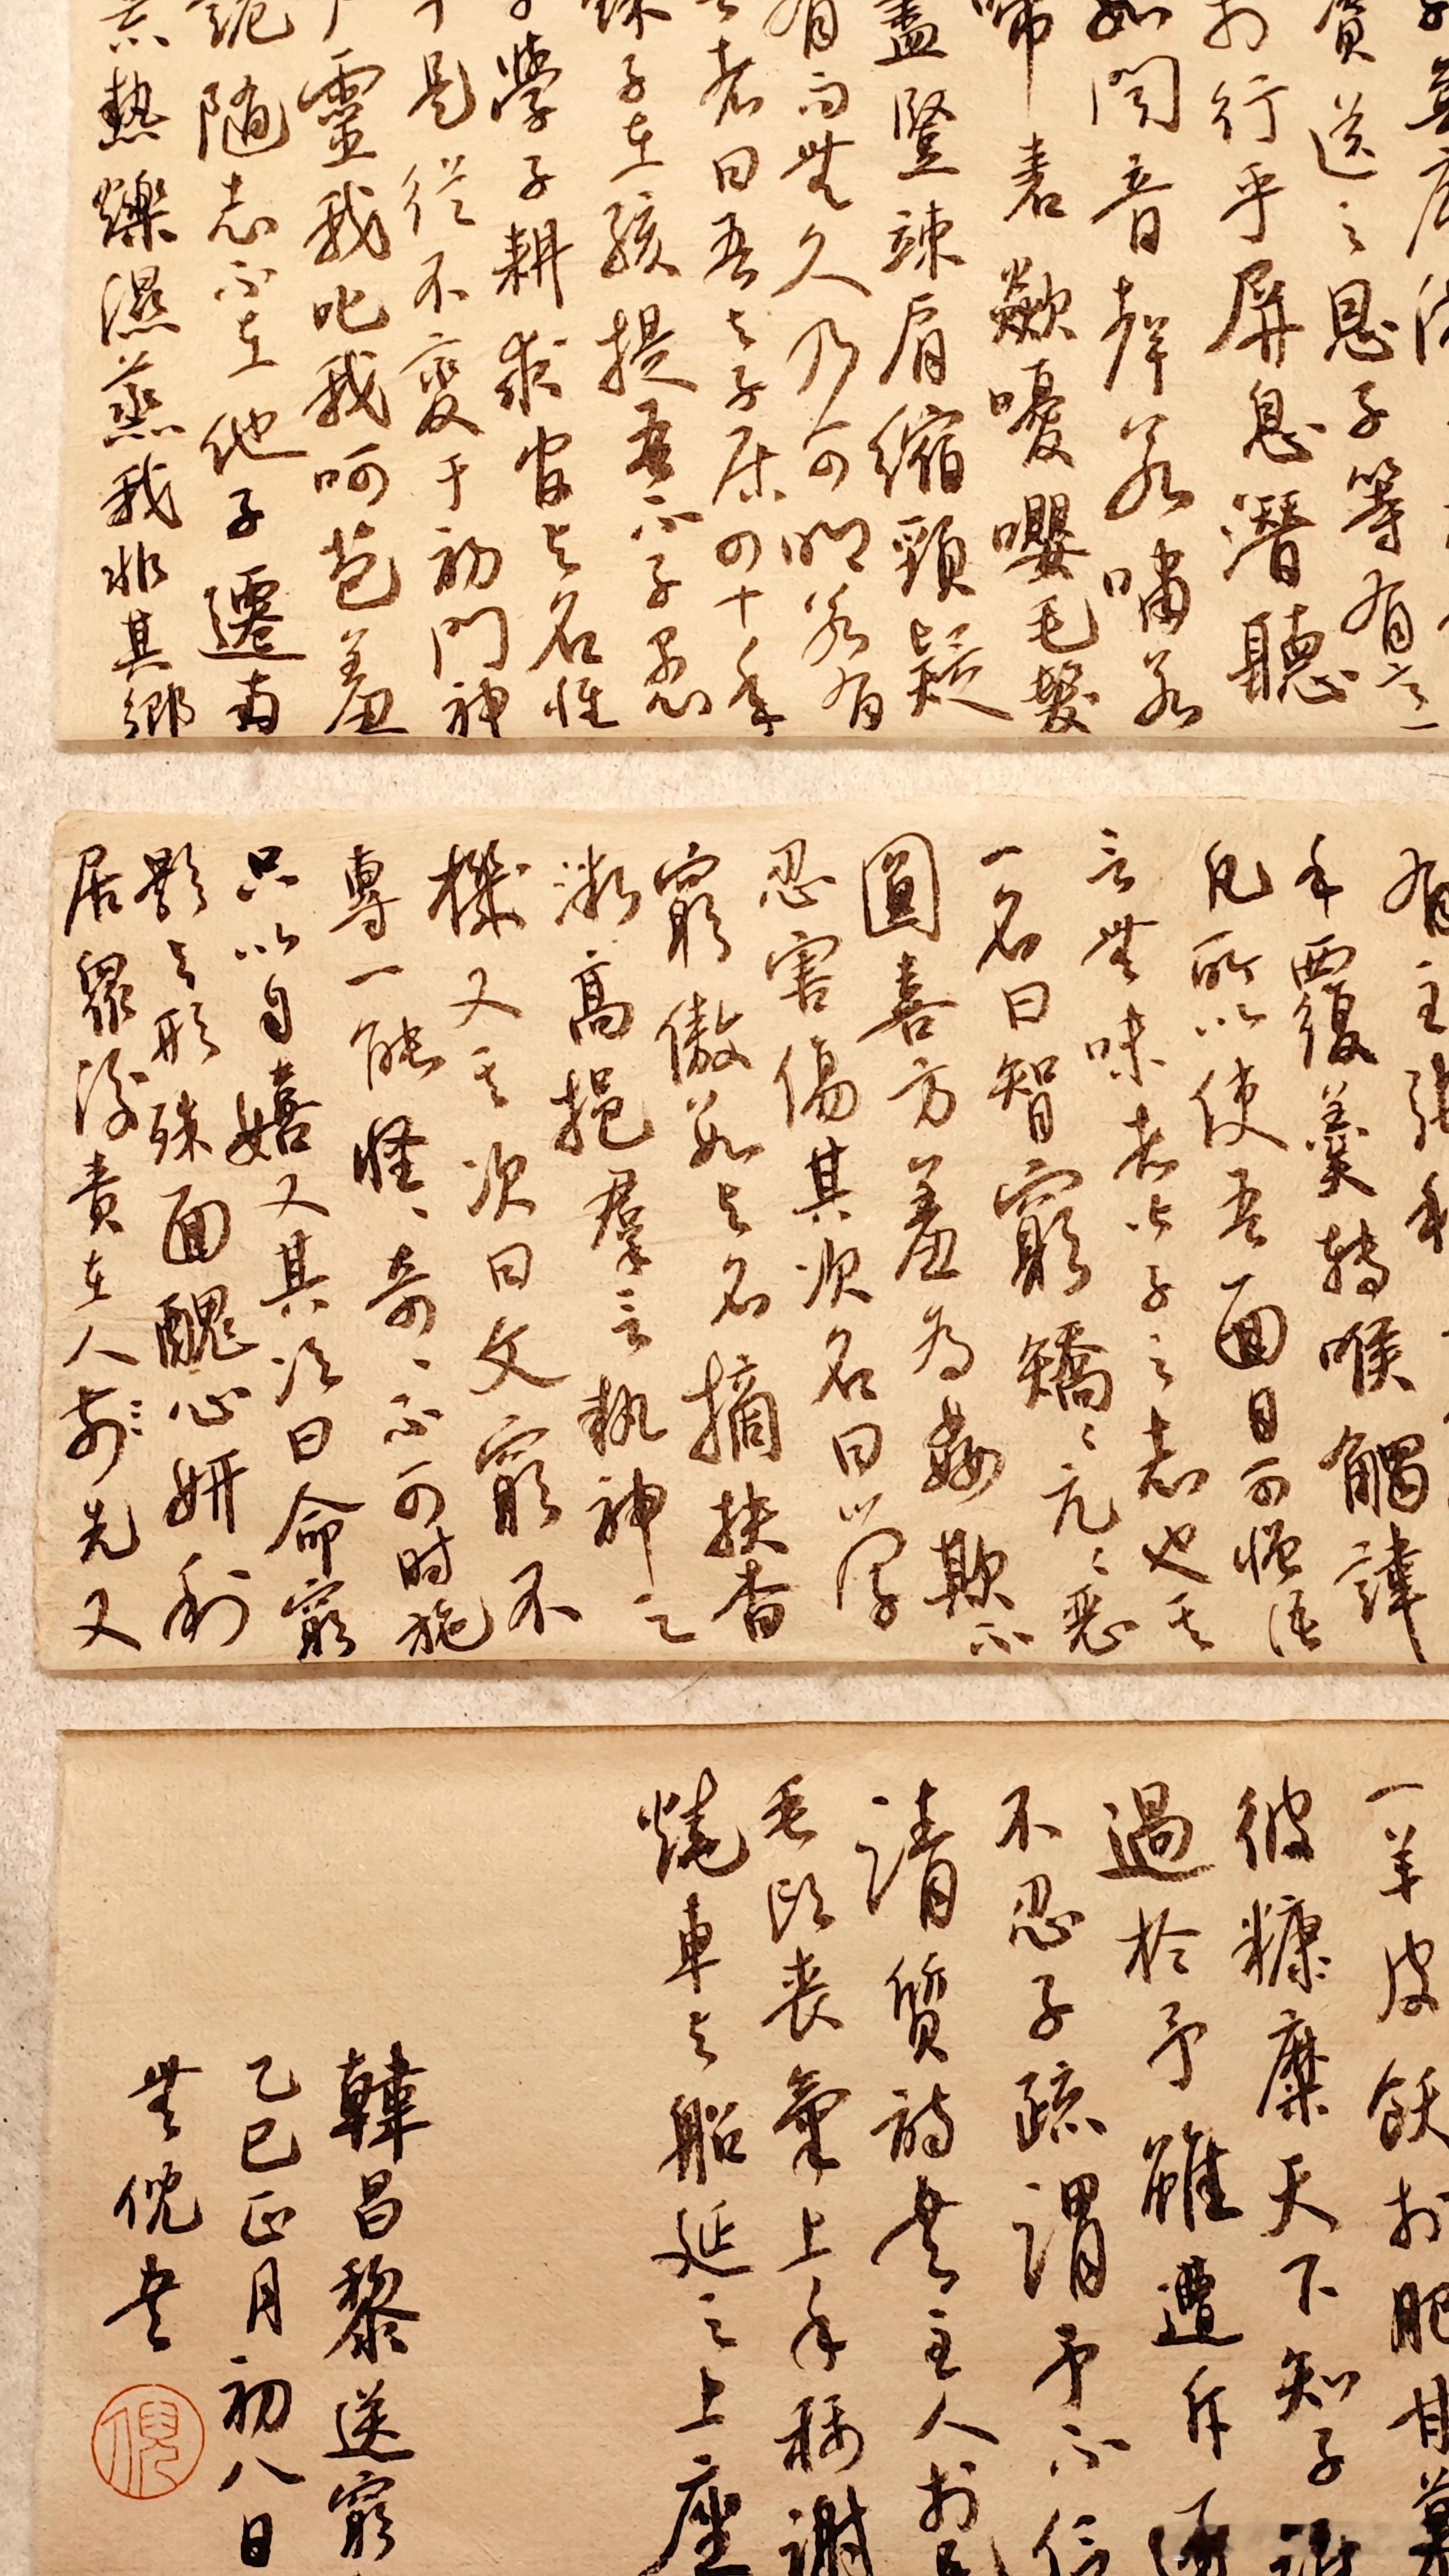 資送之恩子等有意
於行乎屏息潛聽
如聞音聲若嘯若
啼砉欻嚘嚶毛髮
盡豎竦肩縮頸疑
有而無久乃可明若有
言者曰吾與子居四十年
餘子在孩提吾不子愚
子學子耕求官與名惟
子是從不變于初門神
戶靈我叱我呵苞羞
詭隨志不在他子遷南
荒熱爍濕蒸我非其鄉
有主張私
手覆羹轉喉觸諱
凡所以使吾面目可憎語
言無味者皆子之志也其
一名曰智窮矯〻亢〻惡
圓喜方羞為姦欺不
忍害傷其次名曰學
窮傲數與名摘抉杳
微高挹羣言執神之
機又其次曰文窮不
專一能怪、奇、不可時施
只以自嬉又其次曰命窮
影與形殊面醜心妍利
居眾後責在人前先又
一羊皮飫於肥甘慕
彼糠糜天下知子誰
過於予雖遭斥逐
不忍子疏謂予不信
請質詩書主人於是
垂頭喪氣上手稱謝
燒車與船延之上座
韓昌黎送窮
乙巳正月初八日
無倪書
倪